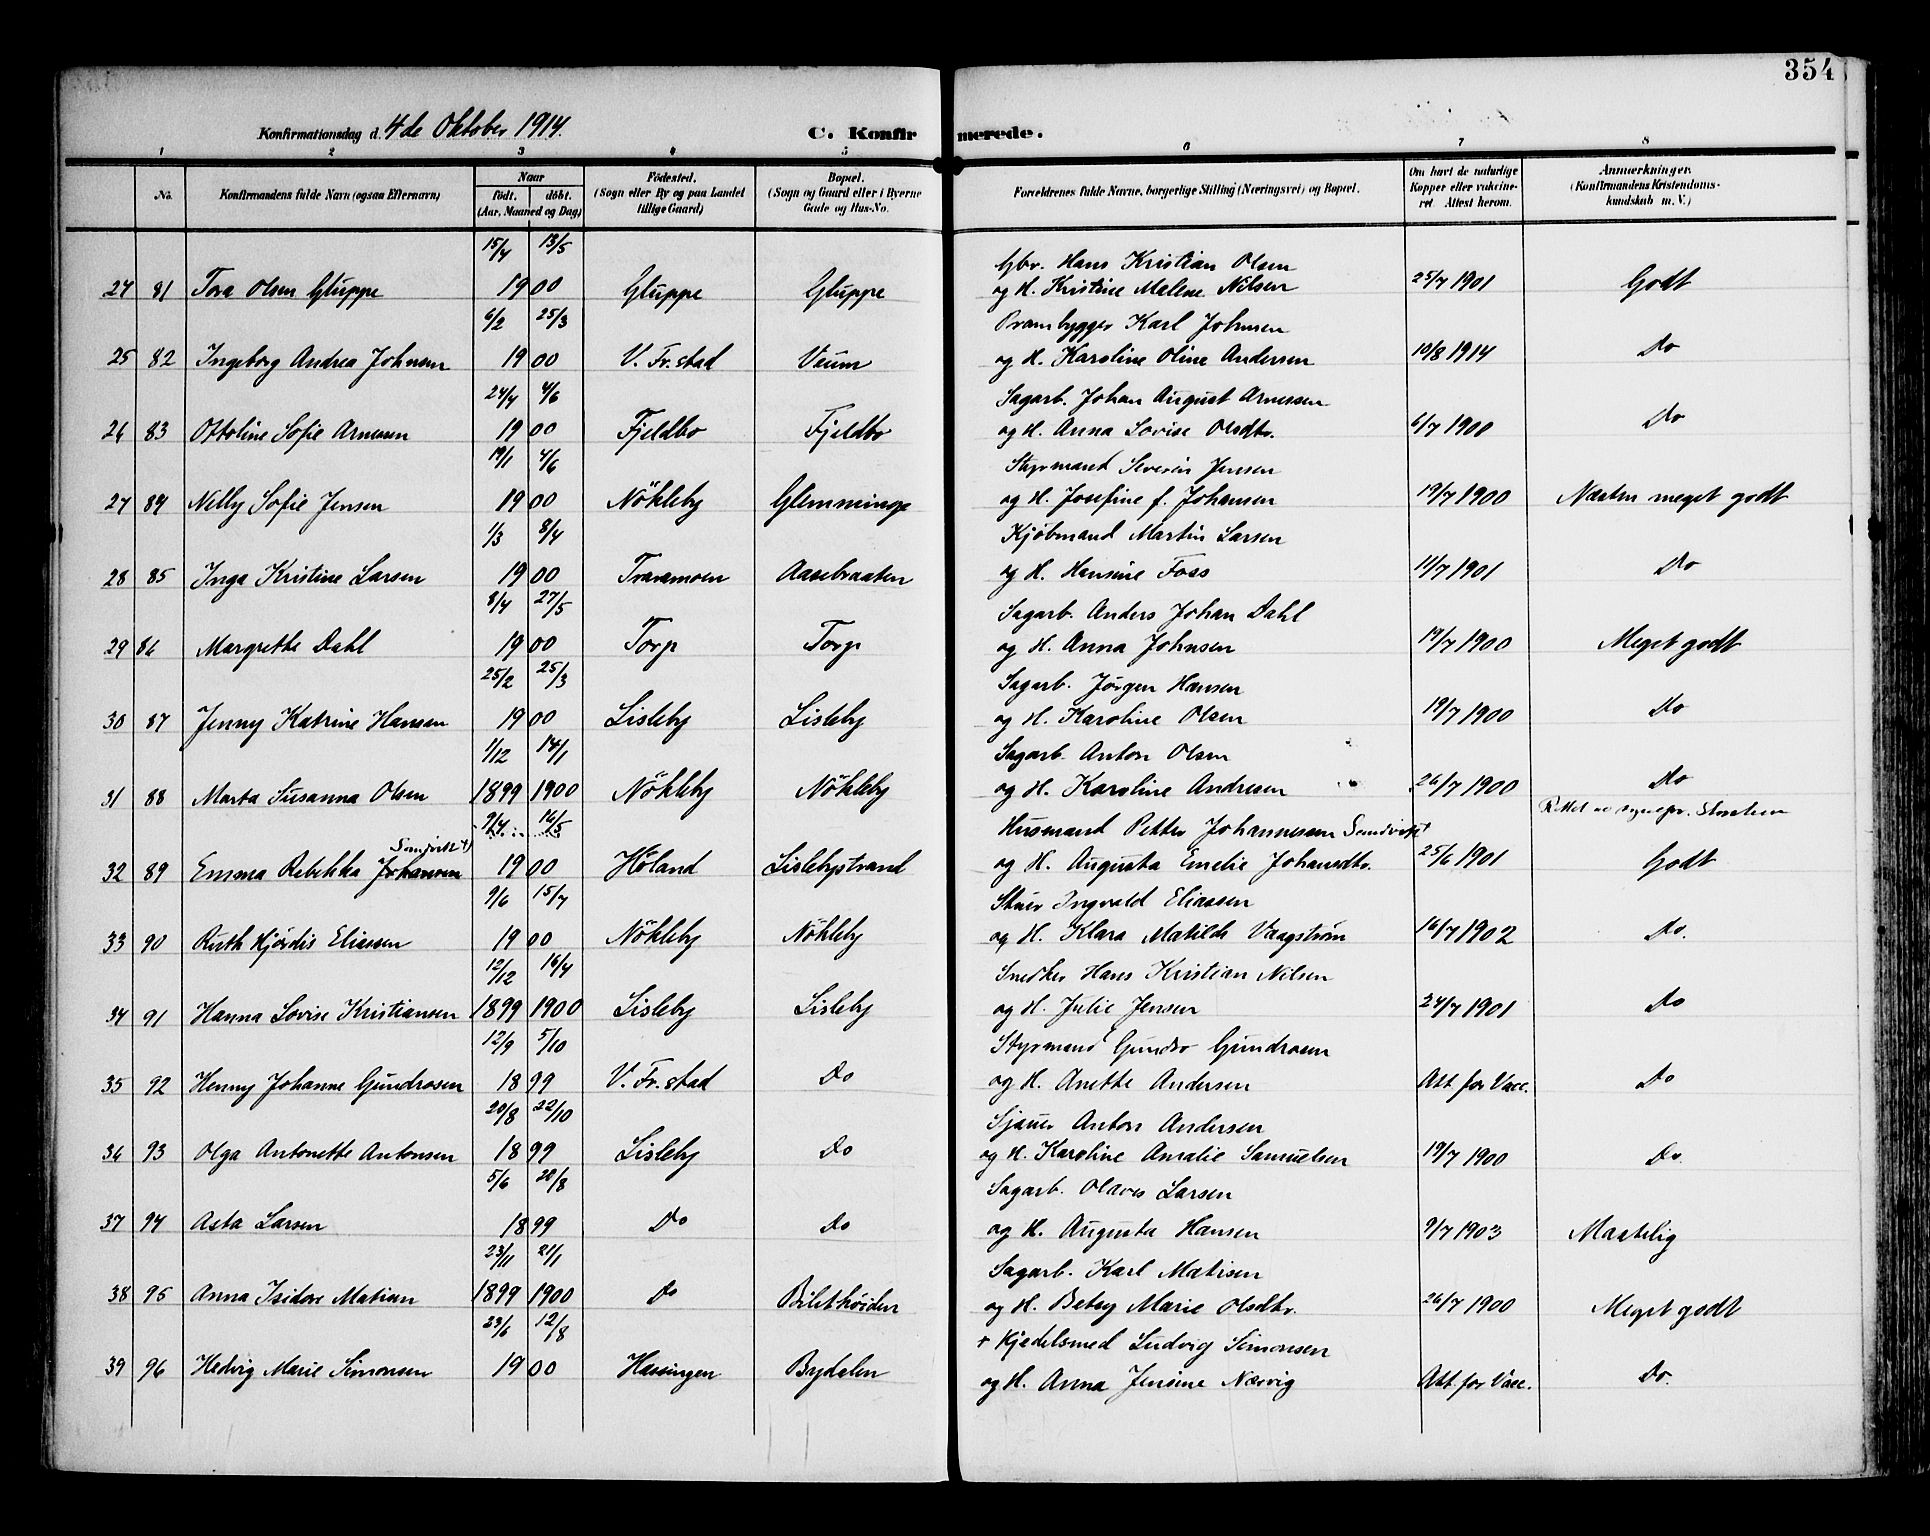 354
Konfirmationsdag d. 4de Oktober 1914. C. Konfirmerede.
1 2 3 4 5 6 7 8
No. Konfirmandens fulde Navn (ogsaa Efternavn) Naar født. døbt. (Aar, Maaned og Dag) Fødested. (Sogn eller By og paa Landet tillige Gaard) Bopæl. (Sogn og Gaard eller i Byerne Gade og Hus-No. Forældrenes fulde Navne, borgerlige Stilling (Næringsvei) og Bopæl. Om havt de naturlige Kopper eller vaccineret Attest herom. Anmærkninger. (Konfirmandens Kristendomskundskab m. V.)
15/4 13/5 Gbr. Hans Kristian Olsen
24 81 Tora Olsen Gluppe 1900 Gluppe Gluppe og H. Kristine Malene Nilsen 25/7 1901 Godt
6/2 25/3 Prambygger Karl Johnsen
25 82 Ingeborg Andrea Johnsen 1900 V. Fr.stad Veum og H. Karoline Oline Andersen 10/8 1914 Do
24/4 4/6 Sagarb. Johan August Arnesen
26 83 Ottoline Sofie Arnesen 1900 Fjeldbo Fjeldbo og H. Anna Lovise Olsdtr. 6/7 1900 Do
19/1 4/6 Styrmand Severin Jensen
27 84 Nelly Sofie Jensen 1900 Nökleby Glemminge og H. Josefine f. Johansen 19/7 1900 Næsten meget godt
1/3 8/4 Kjøbmand Martin Larsen
28 85 Inga Kristine Larsen 1900 Traramoen Aasebraaten og H. Hansine Foss 11/7 1901 Do
8/4 27/5 Sagarb. Anders Johan Dahl
29 86 Margrethe Dahl 1900 Torp Torp og H. Anna Johnsen 19/7 1900 Meget godt
25/2 25/3 Sagarb. Jørgen Hansen
30 87 Jenny Katrine Hansen 1900 Lisleby Lisleby og H. Karoline Olsen 19/7 1900 Do
1/12 14/1 Sagarb. Anton Olsen
31 88 Marta Susanna Olsen 1899 1900 Nökleby Nökleby og H. Karoline Andresen 26/7 1900 Do
9/4 16/5 Husmand Petter Johannesen Sandvik +
Sandvik +)
32 89 Emma Rebekka Johansen 1900 Høland Lislebystrand og H. Augusta Emelie Johansdtr. 25/6 1901 Godt
9/6 15/7 Stuer Ingvald Eliassen
33 90 Ruth Hjördis Eliassen 1900 Nökleby Nökleby og H. Klara Matilde Vaagstrøm 16/7 1902 Do.
12/12 16/4 Snedker Hans Kristian Nilsen
34 91 Hanna Lovise Kristiansen 1899 1900 Lisleby Lisleby og H. Julie Jensen 24/7 1901 Do
12/9 5/10 Styrmand Gundro Gundrosen
35 92 Henny Johanne Gundrosen 1899 V. Fr.stad Do og H. Anette Andersen Att. for Vacc. Do
20/8 22/10 Sjauer Anton Andersen
36 93 Olga Antonette Antonsen 1899 Lisleby Do og H. Karoline Amalie Samuelsen 19/7 1900 Do
5/6 20/8 Sagarb. Olaves Larsen
37 94 Asta Larsen 1899 Do Do og H. Augusta Hansen 9/7 1903 Maatelig
23/11 21/1 Sagarb. Karl Matisen
38 95 Anna Isidore Matisen 1899 1900 Do Bilethöiden og H. Betsy Marie Olsdtr. 26/7 1900 Meget godt
23/6 12/8 + Kjedelsmed Ludvig Simonsen
39 96 Hedvig Marie Simonsen 1900 Hassingen Bydalen og H. Anna Jensine Nærvig Att. for Vacc. Do.